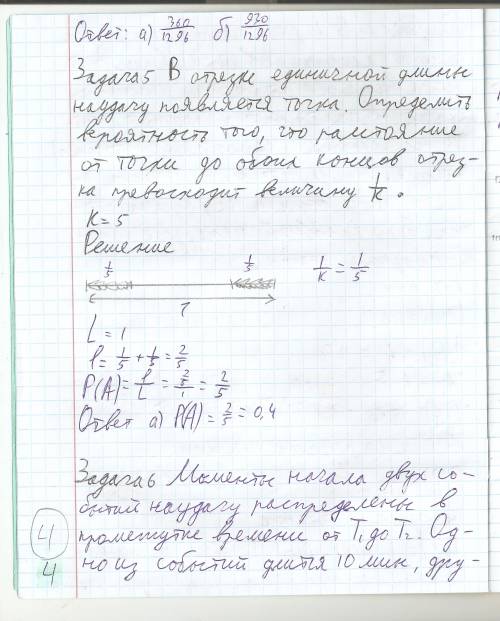 Ответ: а) 360/1296 б) 930/1296
Задача 5 В отрезке единичной длины
наудачу появляется точка. Определить
вероятность того, что расстояние
от точки до обоих концов отрез-
ка превосходит величину 1/k.
K = 5
Решение
1/5 1/5 1/K = 1/5
1
L = 1
l = 1/5 + 1/5 = 2/5
P(A) = l/L = 2/5/1 = 2/5
Ответ а) P(A) = 2/5 = 0,4
Задача 6 Моменты начала двух со-
бытий наудачу распределены в
промежутке времени от T₁ до T₂. Од-
но из событий длится 10 мин, дру-
4
4